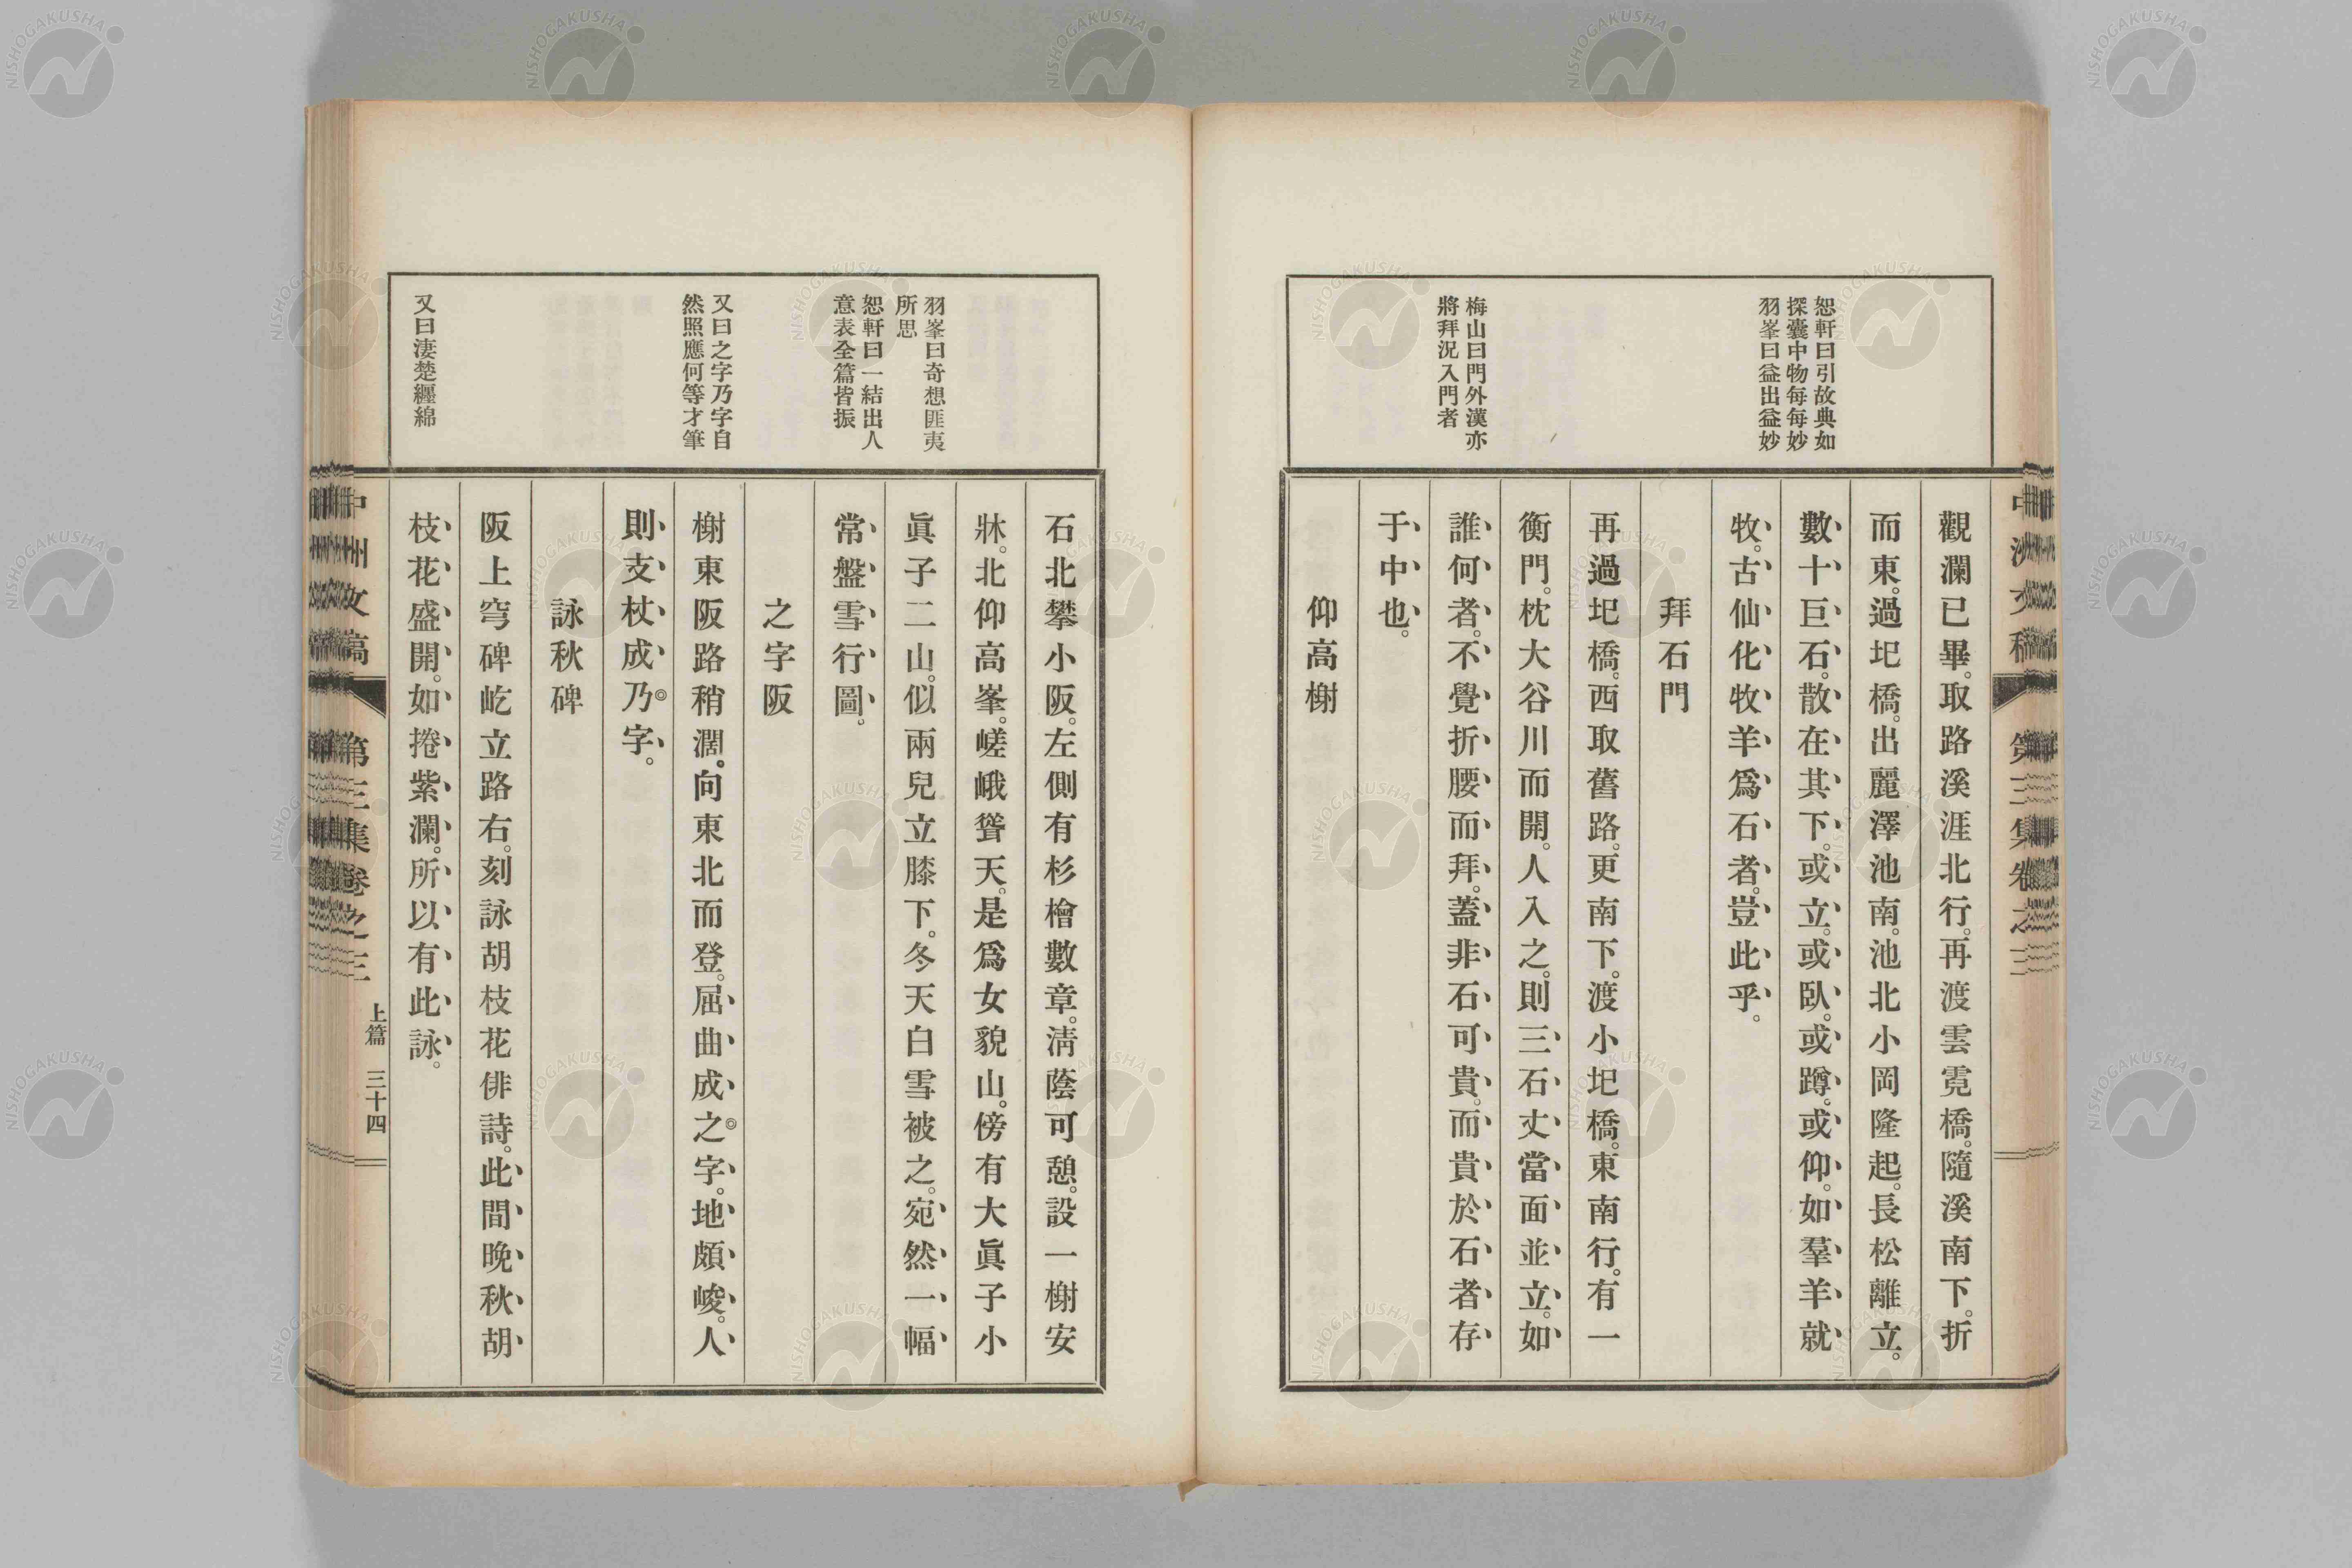 恕軒曰引故典如
探囊中物每每妙
羽峯曰益出益妙
梅山曰門外漢亦
將拜況入門者
觀瀾已畢。取路溪涯北行。再渡雲霓橋。隨溪南下。折
而東。過圯橋。出麗澤池南。池北小岡隆起。長松離立。
數十巨石。散在其下。或立。或臥。或蹲。或仰。如羣羊就
牧。古仙化牧羊爲石者。豈此乎。
拜石門
再過圯橋。西取舊路。更南下。渡小圯橋。東南行。有一
衡門。枕大谷川而開。人入之。則三石丈當面並立。如
誰何者。不覺折腰而拜。蓋非石可貴。而貴於石者存
于中也。
仰高榭
羽峯曰奇想匪夷
所思
恕軒曰一結出人
意表全篇皆振
又曰之字乃字自
然照應何等才筆
又曰淒楚纒綿
石北攀小阪。左側有杉檜數章。淸蔭可憩。設一榭安
牀。北仰高峯。嵯峨聳天。是爲女貌山。傍有大眞子小
眞子二山。似兩兒立膝下。冬天白雪被之。宛然一幅
常盤雪行圖。
之字阪
榭東阪路稍濶。向東北而登。屈曲成之字。地頗峻。人
則支杖成乃字。
詠秋碑
阪上穹碑屹立路右。刻詠胡枝花俳詩。此間晚秋胡
枝花盛開。如捲紫瀾。所以有此詠。
中州文稿 第三集卷之三 上篇 三十四